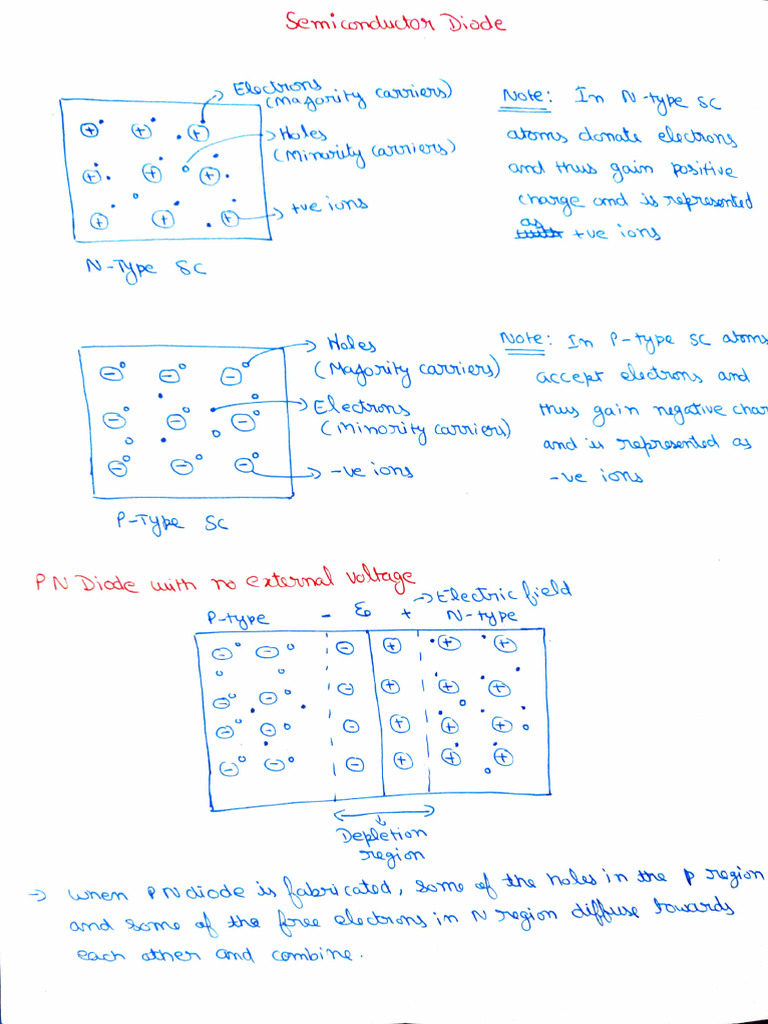 Semiconductor Diode
Electrons
(Majority carriers)
Holes
(Minority carriers)
+ve ions
N-Type SC
Note: In N-type SC
atoms donate electrons
and thus gain positive
charge and is represented
as
+ve ions
Holes
(Majority carriers)
Electrons
(Minority carriers)
-ve ions
P-Type SC
Note: In P-type SC atoms
accept electrons and
thus gain negative char
and is represented as
-ve ions
PN Diode with no external voltage
→ Electric field
P-type - E₀ + N-type
Depletion
region
→ When PN diode is fabricated, some of the holes in the p region
and some of the free electrons in N region diffuse towards
each other and combine.